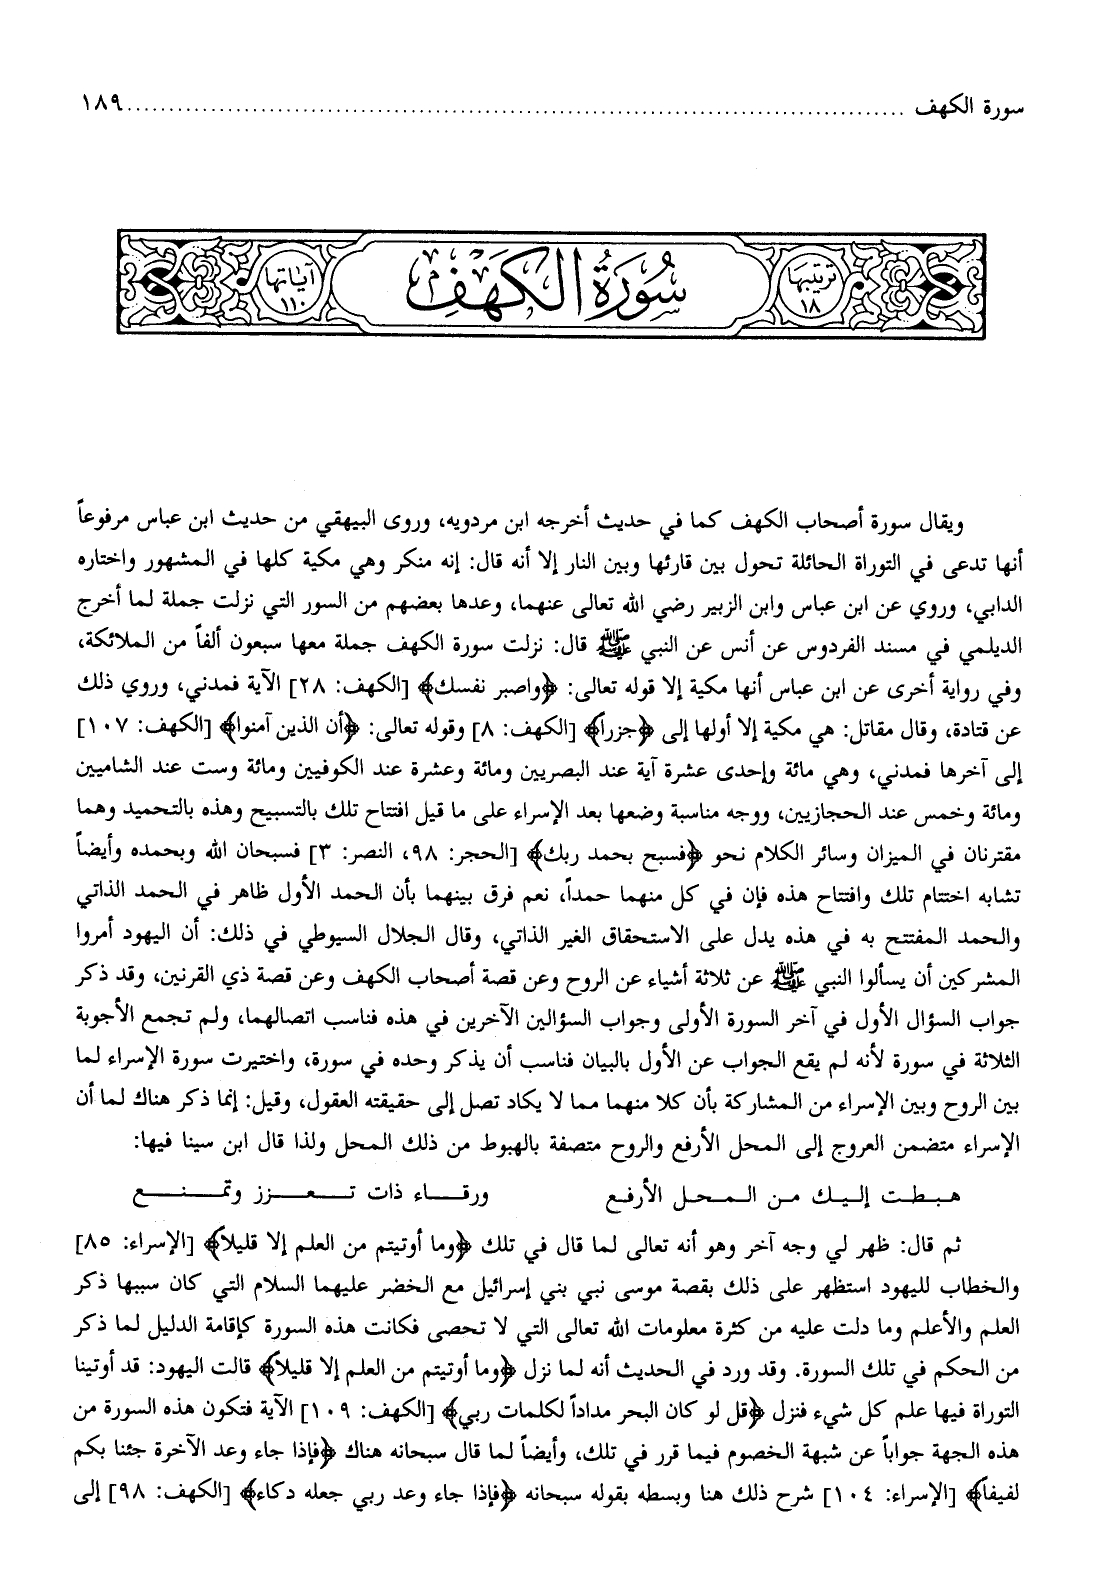 سورة الكهف ........................................................................................ ١٨٩
ترتيبها
١٨
سُورَةُ الكَهْفِ
آياتها
١١٠
ويقال سورة أصحاب الكهف كما في حديث أخرجه ابن مردويه، وروى البيهقي من حديث ابن عباس مرفوعاً
أنها تدعى في التوراة الحائلة تحول بين قارئها وبين النار إلا أنه قال: إنه منكر وهي مكية كلها في المشهور واختاره
الدابي، وروي عن ابن عباس وابن الزبير رضي الله تعالى عنهما، وعدها بعضهم من السور التي نزلت جملة لما أخرج
الديلمي في مسند الفردوس عن أنس عن النبي ﷺ قال: نزلت سورة الكهف جملة معها سبعون ألفاً من الملائكة،
وفي رواية أخرى عن ابن عباس أنها مكية إلا قوله تعالى: ﴿واصبر نفسك﴾ [الكهف: ٢٨] الآية فمدني، وروي ذلك
عن قتادة، وقال مقاتل: هي مكية إلا أولها إلى ﴿جزراً﴾ [الكهف: ٨] وقوله تعالى: ﴿أن الذين آمنوا﴾ [الكهف: ١٠٧]
إلى آخرها فمدني، وهي مائة وإحدى عشرة آية عند البصريين ومائة وعشرة عند الكوفيين ومائة وست عند الشاميين
ومائة وخمس عند الحجازيين، ووجه مناسبة وضعها بعد الإسراء على ما قيل افتتاح تلك بالتسبيح وهذه بالتحميد وهما
مقترنان في الميزان وسائر الكلام نحو ﴿فسبح بحمد ربك﴾ [الحجر: ٩٨، النصر: ٣] فسبحان الله وبحمده وأيضاً
تشابه اختتام تلك وافتتاح هذه فإن في كل منهما حمداً، نعم فرق بينهما بأن الحمد الأول ظاهر في الحمد الذاتي
والحمد المفتتح به في هذه يدل على الاستحقاق الغير الذاتي، وقال الجلال السيوطي في ذلك: أن اليهود أمروا
المشركين أن يسألوا النبي ﷺ عن ثلاثة أشياء عن الروح وعن قصة أصحاب الكهف وعن قصة ذي القرنين، وقد ذكر
جواب السؤال الأول في آخر السورة الأولى وجواب السؤالين الآخرين في هذه فناسب اتصالهما، ولم تجمع الأجوبة
الثلاثة في سورة لأنه لم يقع الجواب عن الأول بالبيان فناسب أن يذكر وحده في سورة، واختيرت سورة الإسراء لما
بين الروح وبين الإسراء من المشاركة بأن كلا منهما مما لا يكاد تصل إلى حقيقته العقول، وقيل: إنما ذكر هناك لما أن
الإسراء متضمن العروج إلى المحل الأرفع والروح متصفة بالهبوط من ذلك المحل ولذا قال ابن سينا فيها:
هـبـطـت إلـيـك مـن الـمـحـل الأرفـع ورقـــاء ذات تــعـــزز وتمـــنـــع
ثم قال: ظهر لي وجه آخر وهو أنه تعالى لما قال في تلك ﴿وما أوتيتم من العلم إلا قليلاً﴾ [الإسراء: ٨٥]
والخطاب لليهود استظهر على ذلك بقصة موسى نبي بني إسرائيل مع الخضر عليهما السلام التي كان سببها ذكر
العلم والأعلم وما دلت عليه من كثرة معلومات الله تعالى التي لا تحصى فكانت هذه السورة كإقامة الدليل لما ذكر
من الحكم في تلك السورة. وقد ورد في الحديث أنه لما نزل ﴿وما أوتيتم من العلم إلا قليلاً﴾ قالت اليهود: قد أوتينا
التوراة فيها علم كل شيء فنزل ﴿قل لو كان البحر مداداً لكلمات ربي﴾ [الكهف: ١٠٩] الآية فتكون هذه السورة من
هذه الجهة جواباً عن شبهة الخصوم فيما قرر في تلك، وأيضاً لما قال سبحانه هناك ﴿فإذا جاء وعد الآخرة جئنا بكم
لفيفاً﴾ [الإسراء: ١٠٤] شرح ذلك هنا وبسطه بقوله سبحانه ﴿فإذا جاء وعد ربي جعله دكاء﴾ [الكهف: ٩٨] إلى